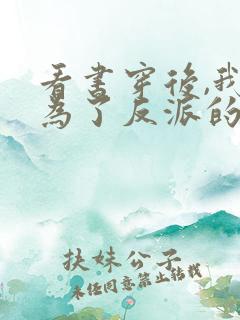 看書穿後,我
為了反派的
扶妹公子
未經同意禁止轉載